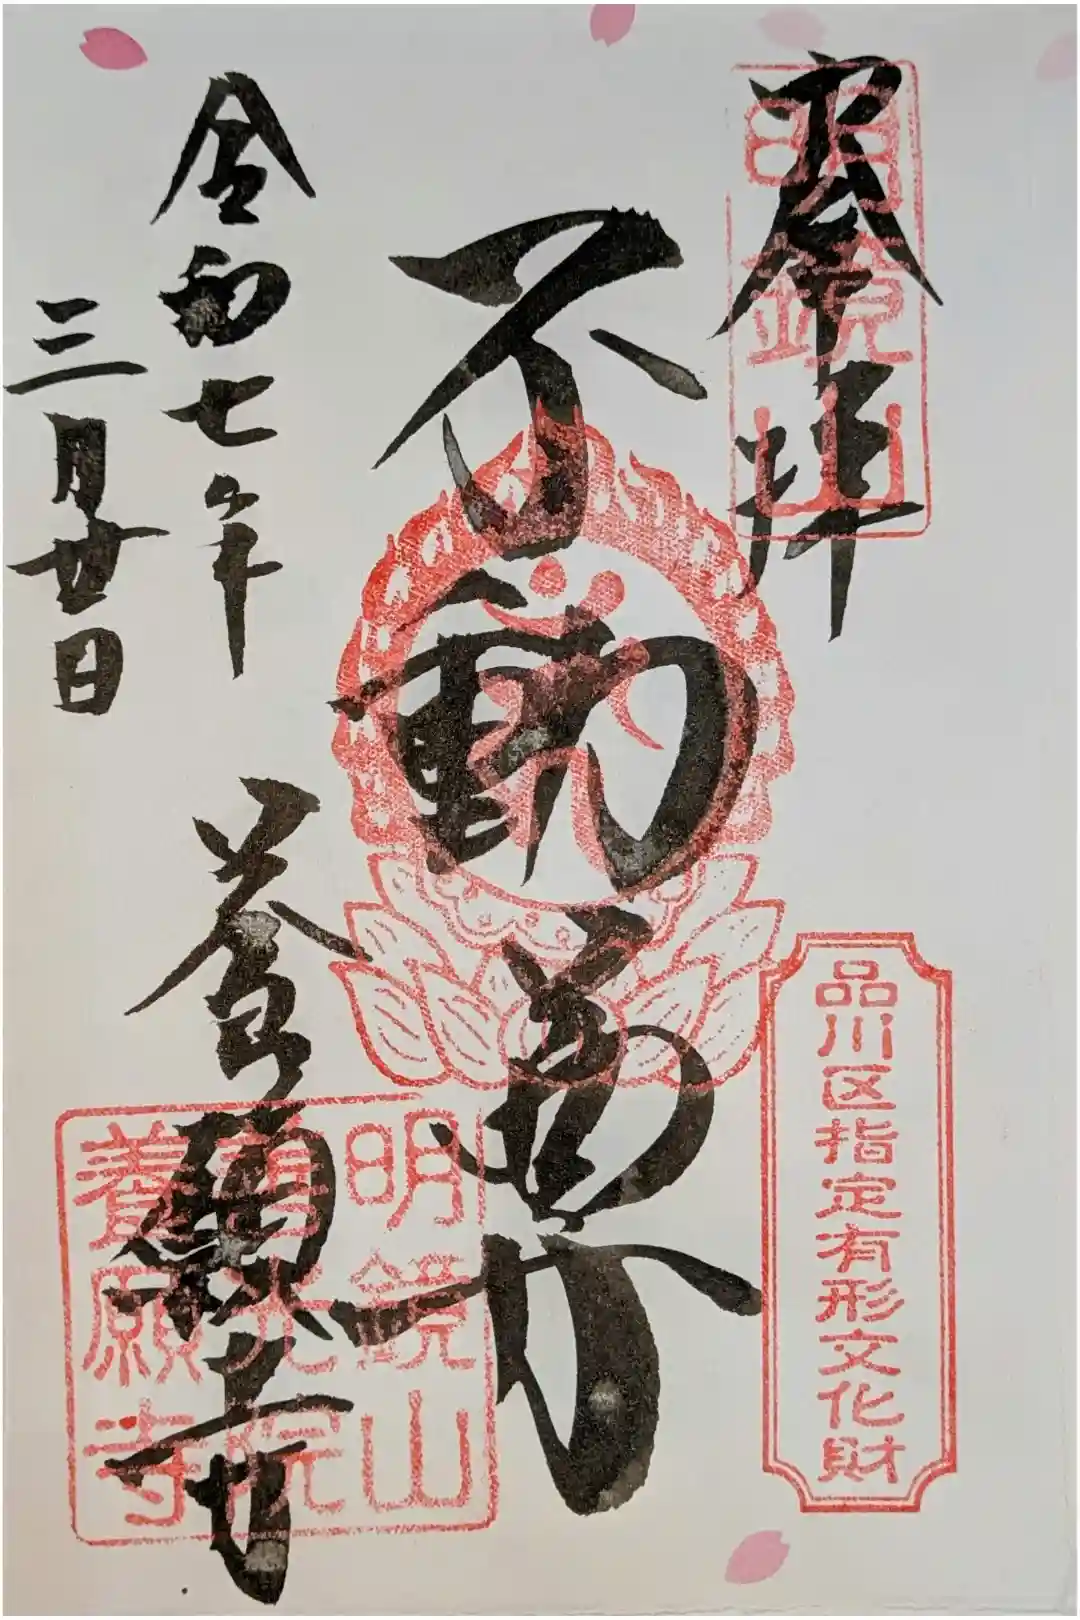 奉拝
明鏡山
品川区指定有形文化財
不動尊
令和七年
三月廿日
養願寺
明鏡山
善光院
養願寺